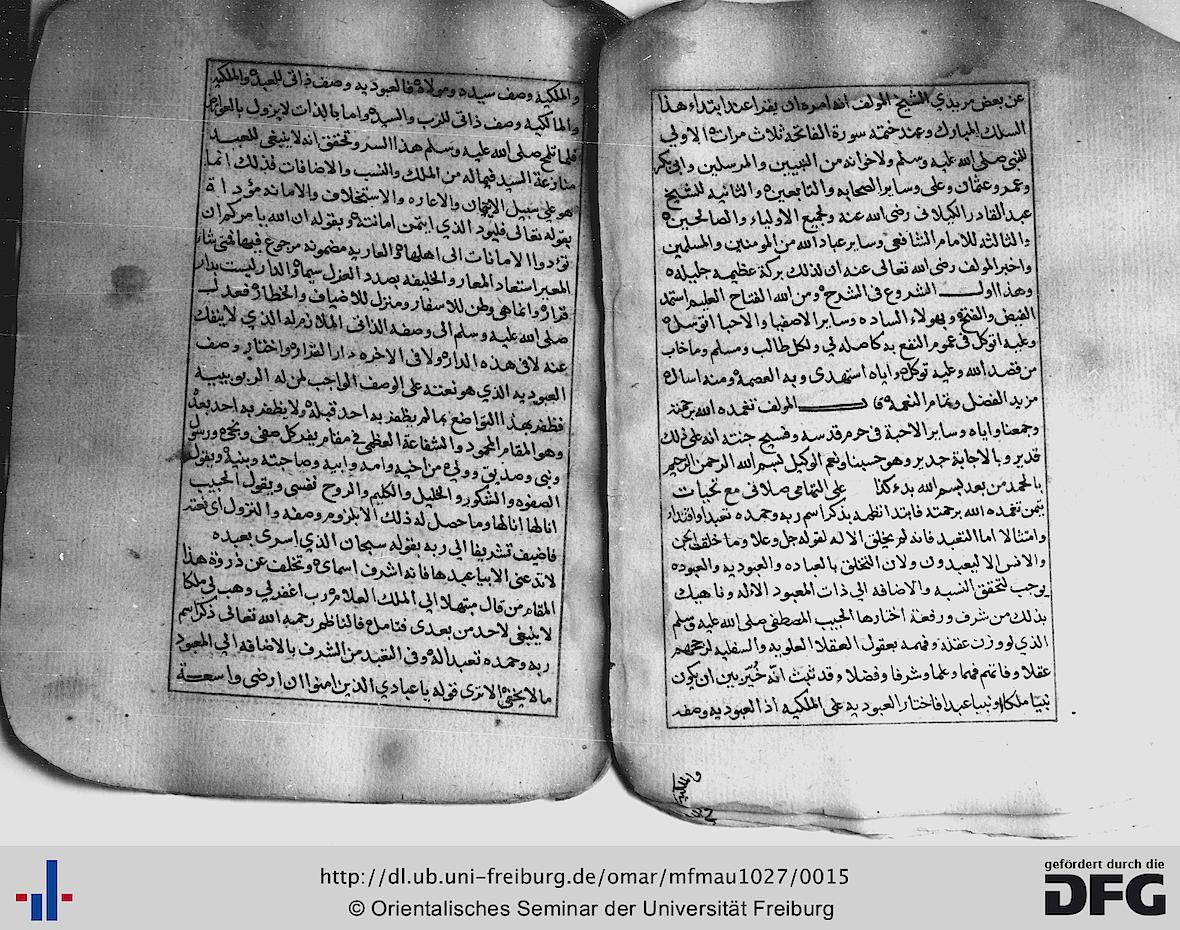 عن بعض مريدي الشيخ المولف انه امره ان يقرا عند ابتداء هذا
السلك المبارك وعند ختمه سورة الفاتحة ثلاث مرات الاولي
للنبي صلى الله عليه وسلم ولاخوانه من النبيين والمرسلين وابي بكر
وعمر وعثمان وعلى وساير الصحابه والتابعين والثانيه للشيخ
عبد القادر الكيلاني رضى الله عنه ولجميع الاولياء والصالحين
والثالثه للامام الشافعي وساير عباد الله من المومنين والمسلمين
واخبر المولف رضى الله تعالى عنه ان لذلك بركة عظيمه جليله
وهذا اول الشروع في الشرح ومن الله الفتاح العليم استمد
الفيض والفتح وبهولاء الساده وساير الاصفيا والاحبا اتوسل
وعليه اتوكل في عموم النفع به كاصله لي ولكل طالب ومسلم وما خاب
من قصد الله وعليه توكل واياه استهدى وبه العصمة ومنه اسال
مزيد الفضل وتمام النعمة قال المولف تغمده الله برحمته
وجمعنا واياه وساير الاحبة في حرم قدسه وفسيح جنته انه على ذلك
قدير وبالاجابة جدير وهو حسبنا ونعم الوكيل بسم الله الرحمن الرحيم
بالحمد من بعد بسم الله بدء كذا على التهامي صلاتي مع تحيات
تيمن تغمده الله برحمته فابتدا نظمه بذكر اسم ربه وحمده تعبدا واقتدا
وامتثالا اما التعبد فانه لم يخلق الا له لقوله جل وعلا وما خلقت الجن
والانس الا ليعبدون ولان التخلق بالعباده والعبوديه والعبوده
يوجب لتحقق النسبه والاضافه الي ذات المعبود الاله وناهيك
بذلك من شرف ورفعة اختارها الحبيب المصطفى صلى الله عليه وسلم
الذي لو وزن عقله وفهمه بعقول العقلا العلويه والسفليه لرجحهم
عقلا وفاتهم فهما وعلما وشرفا وفضلا وقد ثبت انه خُيّر بين ان يكون
نبيا ملكا او نبيا عبدا فاختار العبوديه على الملكيه اذ العبوديه وصفه
والملكيه
والملكيه وصف سيده ومولاه فالعبوديه وصف ذاتي للعبد والملكيه
والمالكيه وصف ذاتي للرب والسيد وما بالذات لا يزول بالعوارض
فلما تلمح صلى الله عليه وسلم هذا السر وتحقق انه لا ينبغي للعبد
منازعة السيد فيما له من الملك والنسب والاضافات فذلك انما
هو علي سبيل الايتمان والاعاره والاستخلاف والامانه مؤداة
بقوله تعالى فليود الذي ايتمن امانته وبقوله ان الله يامركم ان
تؤدوا الامانات الى اهلها والعاريه مضمونه مرجوع فيها متى شاء
المعير استعاد المعار والخليفه بصدد العزل سيما والدار ليست بدار
قرار وانما هي وطن للاسفار ومنزل للاضياف والخطار فعدل
صلى الله عليه وسلم الى وصفه الذاتي الملازم له الذي لا ينفك
عنه لا في هذه الدار ولا في الاخره دار القرار واختار وصف
العبوديه الذي هو نعته على الوصف الواجب لمن له الربوبيه
فظفر بهذا التواضع بما لم يظفر به احد قبله ولا يظفر به احد بعده
وهو المقام المحمود والشفاعة العظمى في مقام يفر كل صفي ونجي ورسول
ونبي وصديق وولي من اخيه وامه وابيه وصاحبته وبنيه ويقول
الصفوه والشكور والخليل والكليم والروح نفسي ويقول الحبيب
انا لها انا لها وما حصل له ذلك الا بلزوم وصفه والنزول اي نعته
فاضيف تشريفا الي ربه بقوله سبحان الذي اسرى بعبده
لا تدعني الا بيا عبدها فانه اشرف اسماي وتخلف عن ذروة هذا
المقام من قال مبتهلا الي الملك العلام رب اغفر لي وهب لي ملكا
لا ينبغي لاحد من بعدى فتامل فالناظم رحمه الله تعالى ذكر اسم
ربه وحمده تعبدا له وفي التعبد من الشرف بالاضافه الي المعبود
ما لا يخفي الا ترى قوله يا عبادي الذين امنوا ان ارضى واسعة
http://dl.ub.uni-freiburg.de/omar/mfmau1027/0015
© Orientalisches Seminar der Universität Freiburg
gefördert durch die
DFG